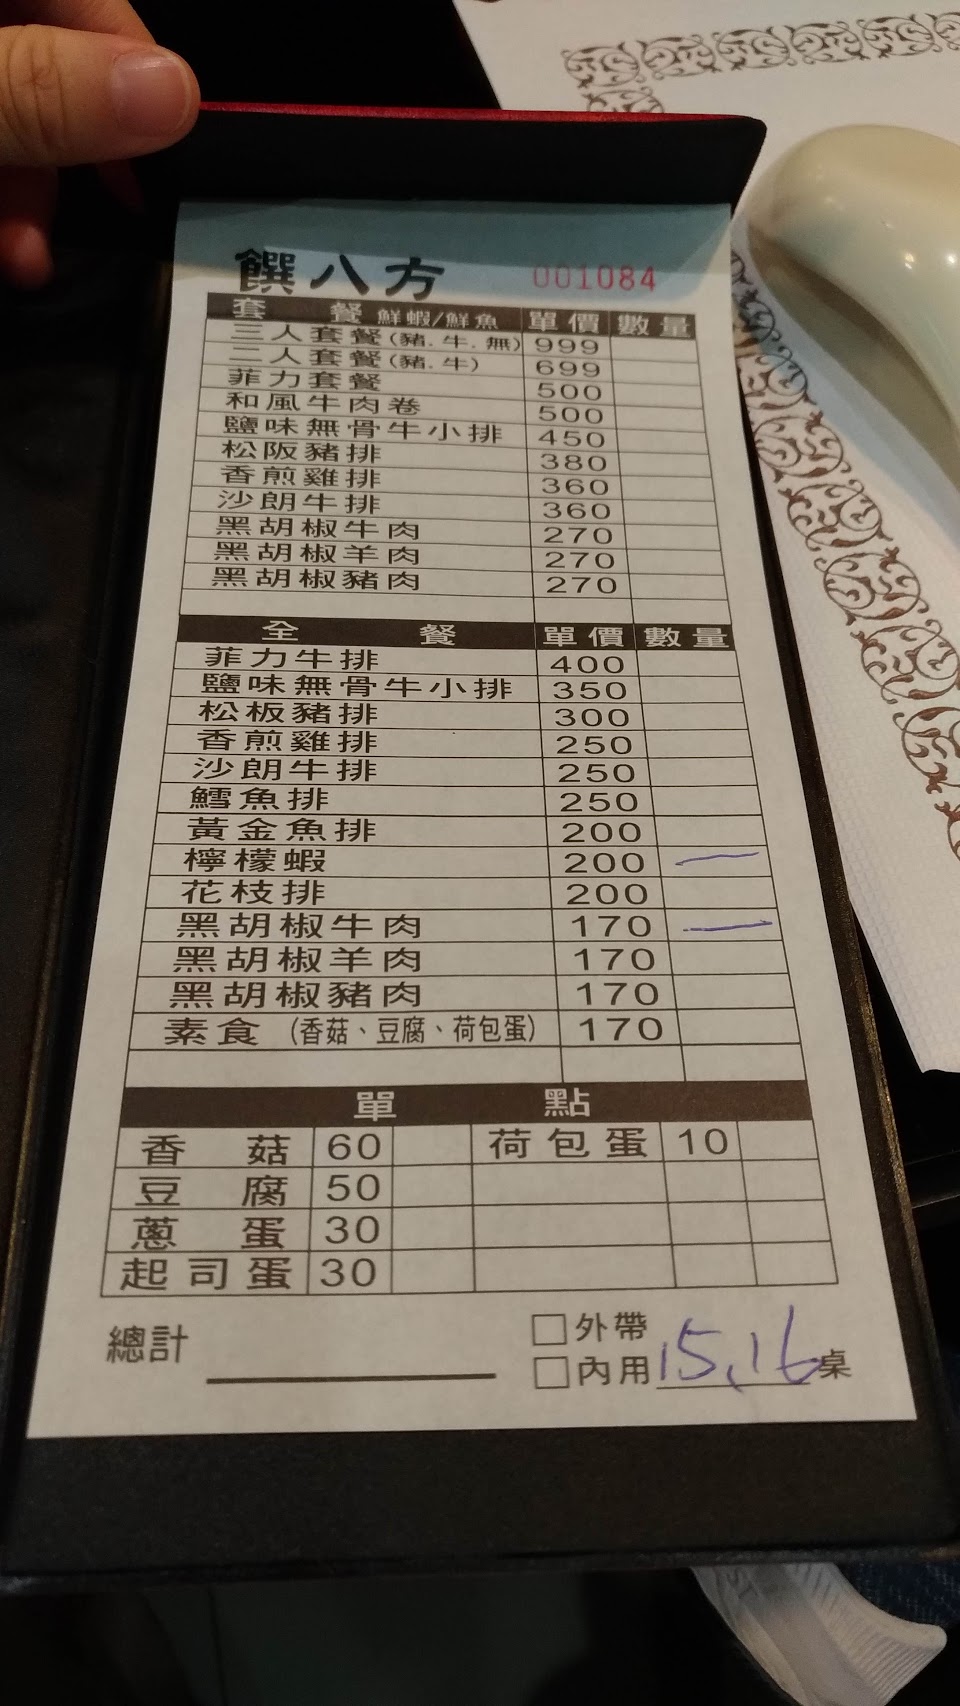 饌八方 001084
套餐 鮮蝦/鮮魚 單價 數量
三人套餐(豬.牛.無) 999
二人套餐(豬.牛) 699
菲力套餐 500
和風牛肉卷 500
鹽味無骨牛小排 450
松阪豬排 380
香煎雞排 360
沙朗牛排 360
黑胡椒牛肉 270
黑胡椒羊肉 270
黑胡椒豬肉 270
全餐 單價 數量
菲力牛排 400
鹽味無骨牛小排 350
松板豬排 300
香煎雞排 250
沙朗牛排 250
鱈魚排 250
黃金魚排 200
檸檬蝦 200 一
花枝排 200
黑胡椒牛肉 170 一
黑胡椒羊肉 170
黑胡椒豬肉 170
素食 (香菇、豆腐、荷包蛋) 170
單點
香菇 60 荷包蛋 10
豆腐 50
蔥蛋 30
起司蛋 30
總計 □外帶
□內用 15,16 桌